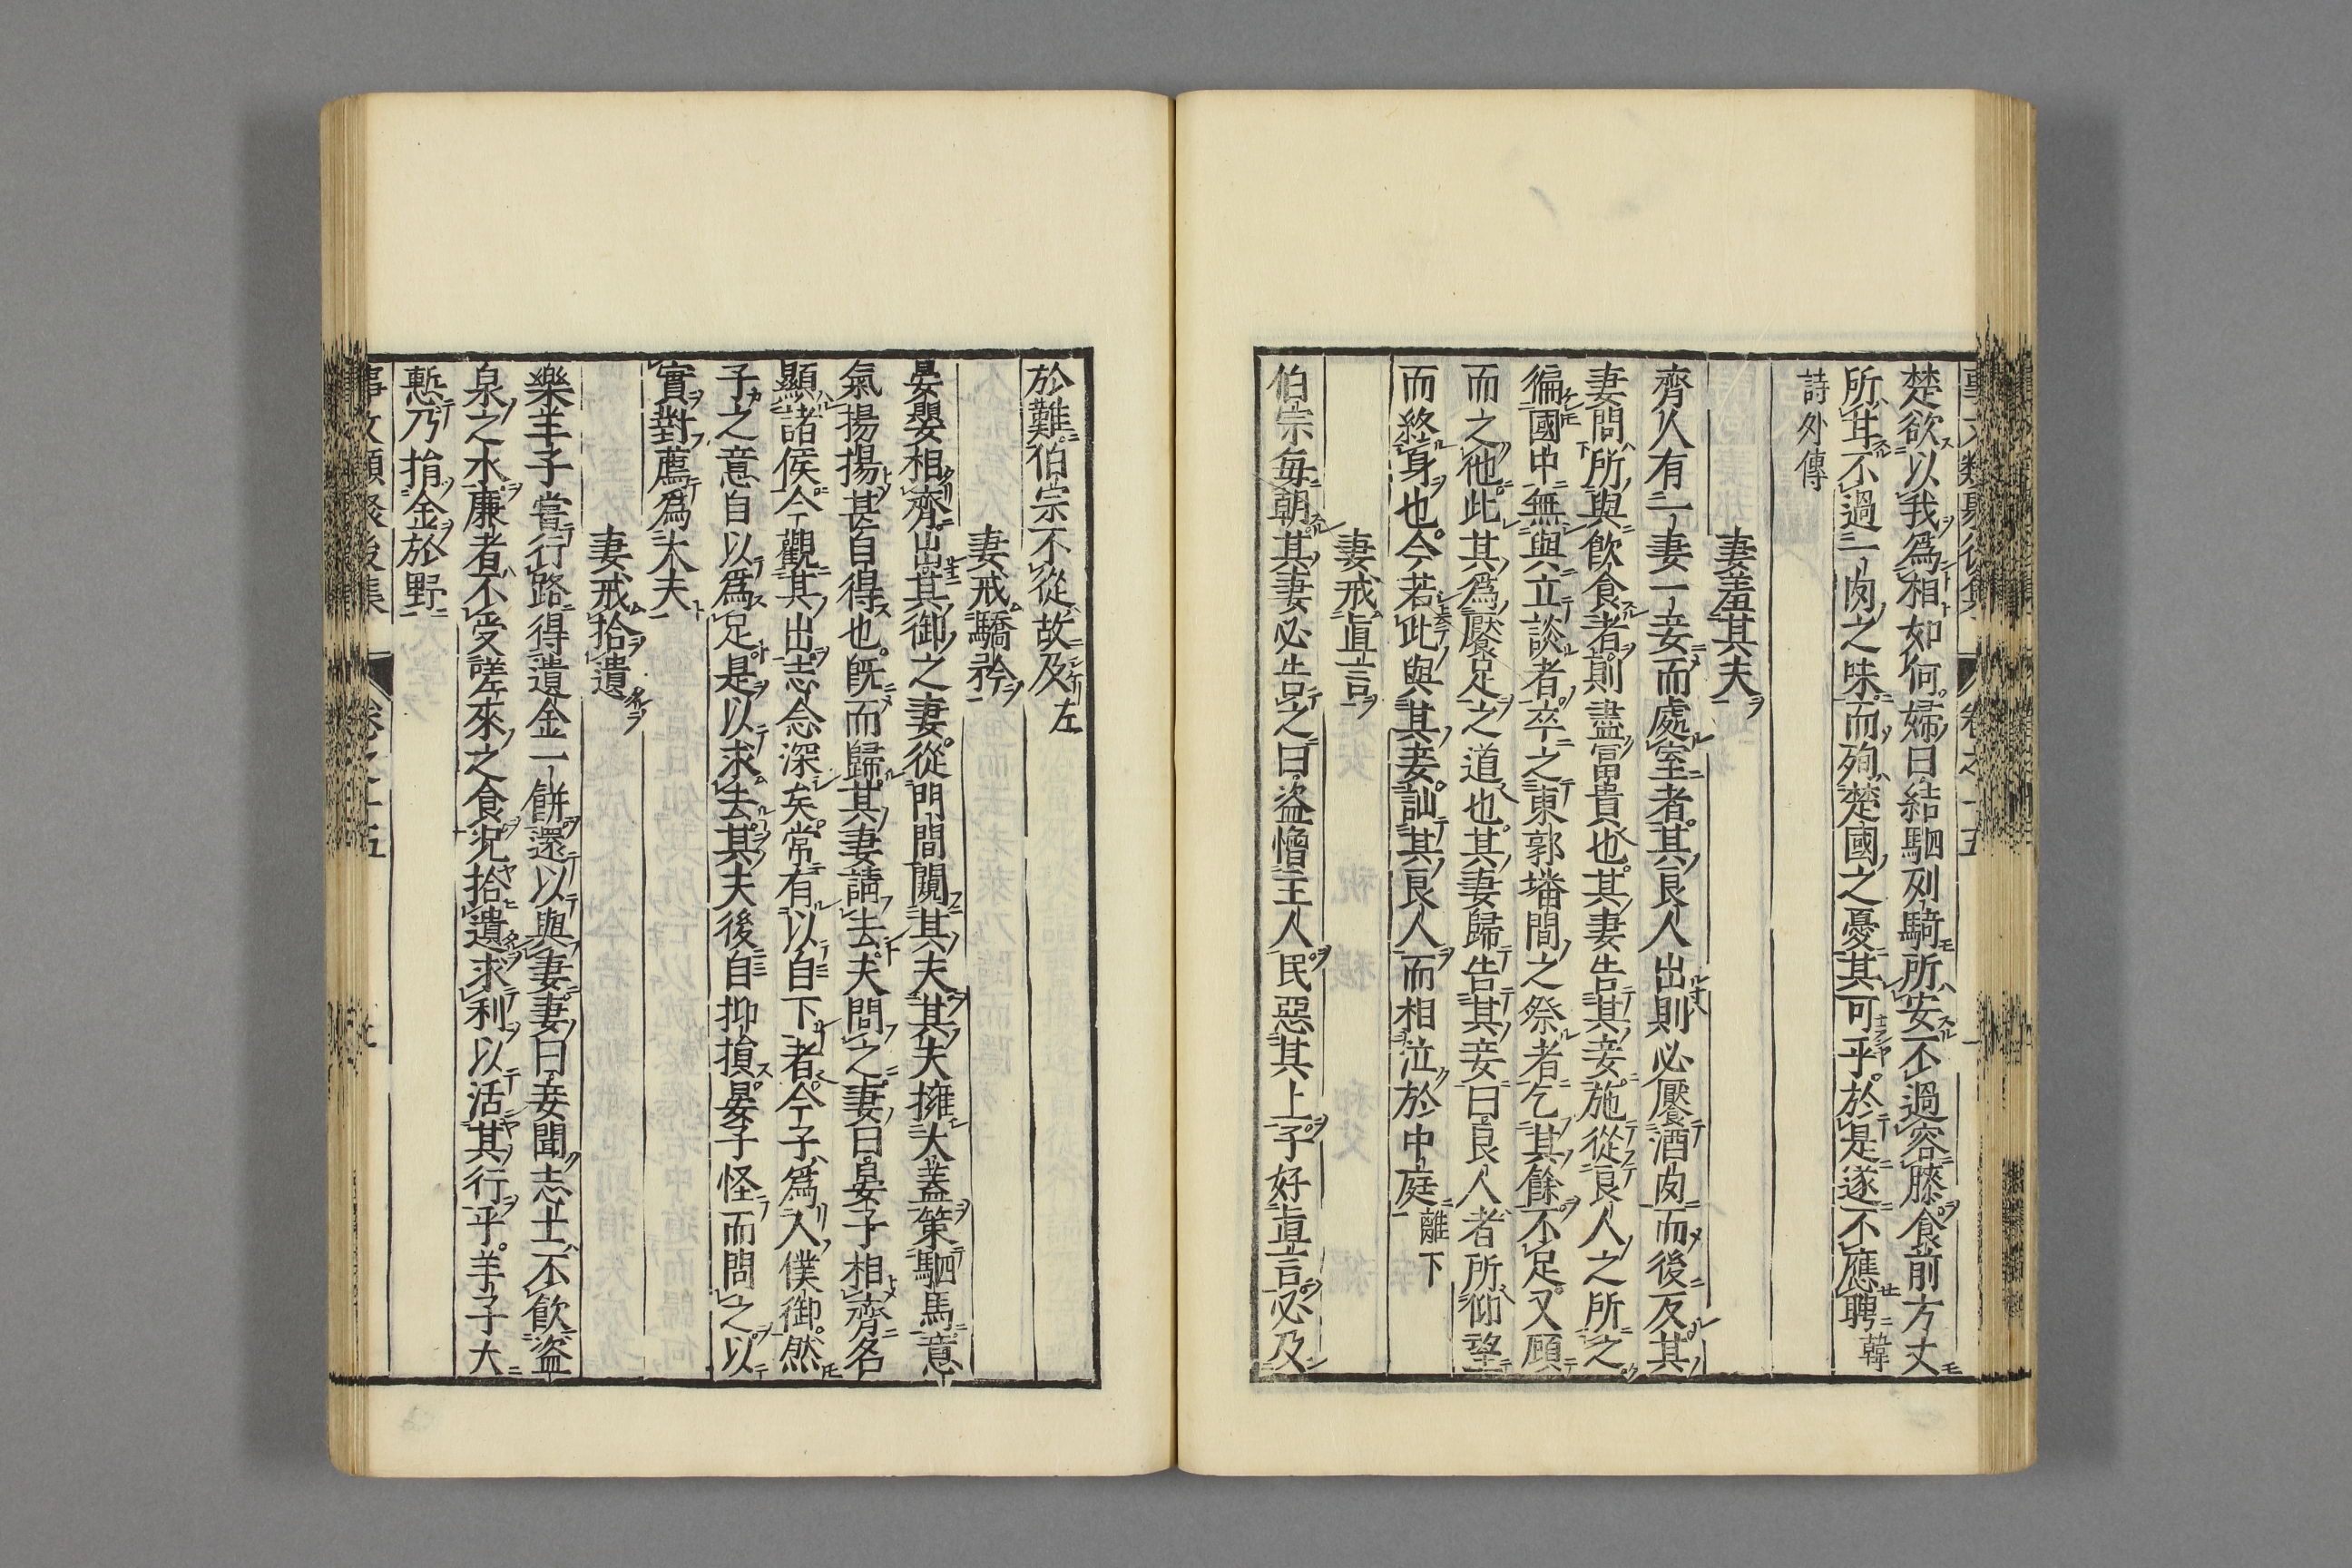 楚欲以我爲相如何婦曰結駟列騎所安不過容膝食前方丈
所甘不過一肉之味而殉楚國之憂其可乎於是遂不應聘韓
詩外傳
妻羞其夫
齊人有一妻一妾而處室者其良人出則必饜酒肉而後反其
妻問所與飲食者則盡富貴也其妻告其妾施從良人之所之
徧國中無與立談者卒之東郭墦間之祭者乞其餘不足又顧
而之他此其爲饜足之道也其妻歸告其妾曰良人者所仰望
而終身也今若此與其妾訕其良人而相泣於中庭離下
妻戒直言
伯宗每朝其妻必告之曰盜憎主人民惡其上子好直言必及
於難伯宗不從故及左
妻戒驕矜
晏嬰相齊出其御之妻從門間闚其夫其夫擁大蓋策駟馬意
氣揚揚甚自得也旣而歸其妻請去夫問之妻曰晏子相齊名
顯諸侯今觀其出志念深矣常有以自下者今子爲人僕御然
子之意自以爲足是以求去其夫後自抑損晏子怪而問之以
實對薦爲大夫
妻戒拾遺
樂羊子嘗行路得遺金一餅還以與妻妻曰妾聞志士不飲盜
泉之水廉者不受嗟來之食況拾遺求利以活其行乎羊子大
慙乃捐金於野